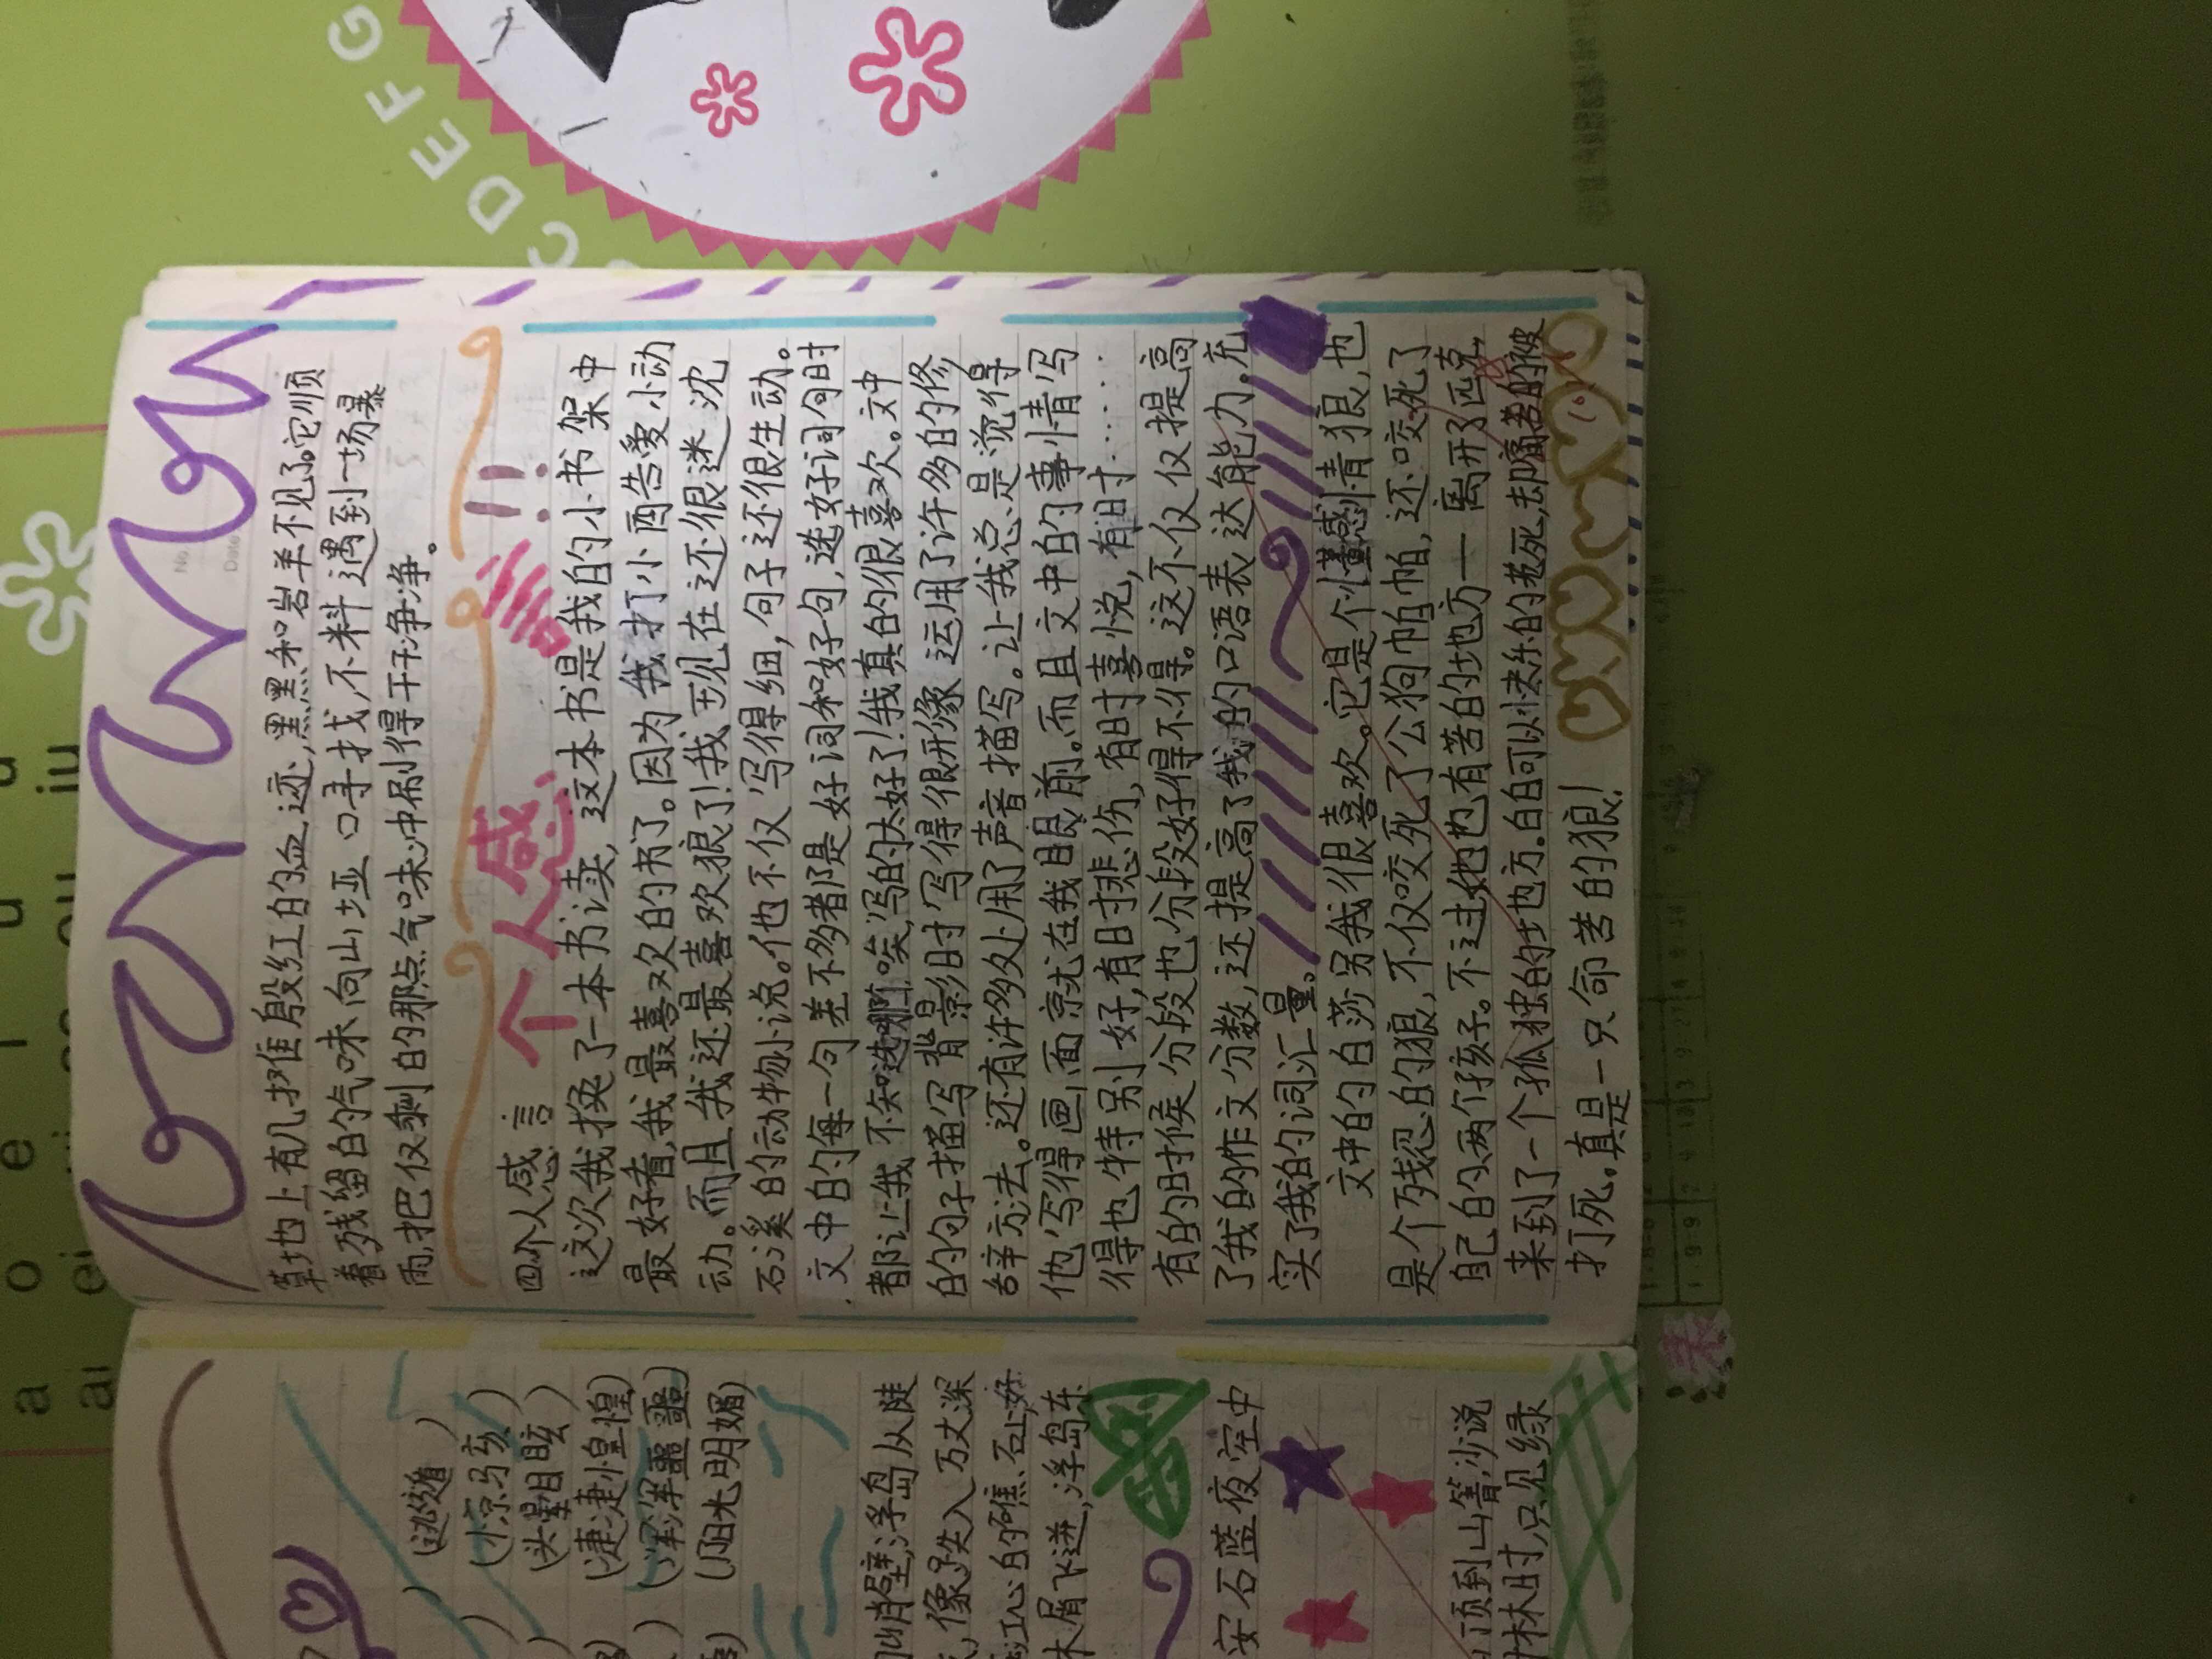 草地上有几摊殷红的血迹,黑黑和岩羊不见了。它顺
着残留的气味向山垭口寻找,不料遇到一场暴
雨,把仅剩的那点气味冲刷得干干净净。
个人感
!!
四个人感言
这次我换了一本书读,这本书是我的小书架中
最好看,我最喜欢的书了。因为我打小酉告爱小动
动。而且我还最喜欢狼了!我到现在还很迷沈
石溪的动物小说。他不仅写得细,句子还很生动。
文中的每一句差不多都是好词和好句,选好词句时
都让我不知选哪,唉,写的太好了!我真的很喜欢。文中
的句子描写背景时写得很形像,运用了许多的修
辞方法。还有许多处用了声音描写。让我总是觉得
他写得画面就在我眼前。而且文中的事情写
得也特别好,有时悲伤,有时喜悦,有时……
有的时候分段也分段好得不得。这不仅仅提高
了我的作文分数,还提高了我的口语表达能力。充
实了我的词汇量。
文中的白莎另我很喜欢。它是个懂感情狼,也
是个残忍的狼,不仅咬死了公狗帕帕,还咬死了
自己的两个孩子。不过她也有苦的地方——离开了匹克,
来到了一个孤独的地方。白白可以快乐的老死,却痛苦的被
打死。真是一只命苦的狼!
(逃遁)
(惊骇)
(头晕目眩)
(凄凄惶惶)
(浑浑噩噩)
(阳光明媚)
峭壁,浮岛从陡
,像跌入万丈深
江心的礁石上,好
木屑飞迸,浮岛东
安石蓝夜空中
顶到山箐,沙说
林时,只见绿
C D E F G
No.
Date
a o e i u